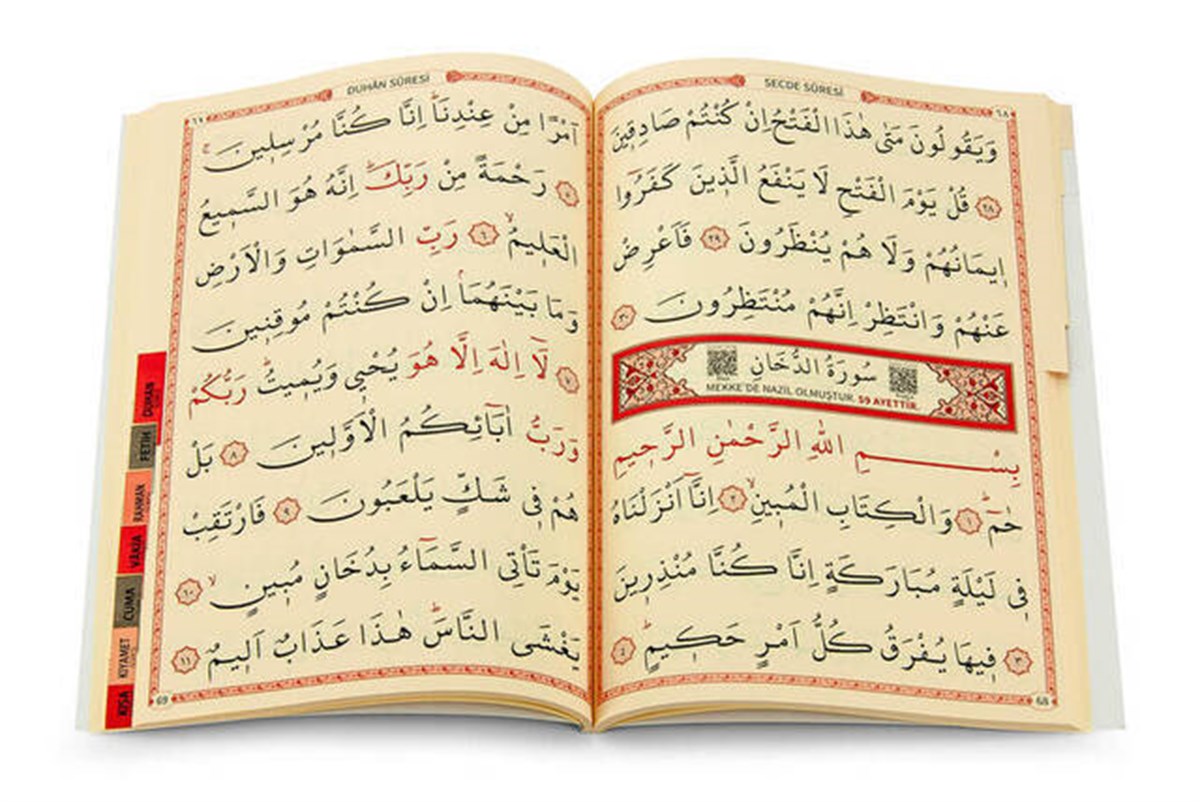 SECDE SÛRESİ
٦٨
وَيَقُولُونَ مَتٰى هٰذَا الْفَتْحُ اِنْ كُنْتُمْ صَادِقٖينَ
﴿٢٨﴾ قُلْ يَوْمَ الْفَتْحِ لَا يَنْفَعُ الَّذٖينَ كَفَرُٓوا
اٖيمَانُهُمْ وَلَا هُمْ يُنْظَرُونَ ﴿٢٩﴾ فَاَعْرِضْ
عَنْهُمْ وَانْتَظِرْ اِنَّهُمْ مُنْتَظِرُونَ ﴿٣٠﴾
سُورَةُ الدُّخَانِ
MEKKE'DE NAZİL OLMUŞTUR. 59 AYETTİR.
بِسْمِ اللّٰهِ الرَّحْمٰنِ الرَّحٖيمِ
حٰمٓ ﴿١﴾ وَالْكِتَابِ الْمُبٖينِ ﴿٢﴾ اِنَّٓا اَنْزَلْنَاهُ
فٖى لَيْلَةٍ مُبَارَكَةٍ اِنَّا كُنَّا مُنْذِرٖينَ
﴿٣﴾ فٖيهَا يُفْرَقُ كُلُّ اَمْرٍ حَكٖيمٍ ﴿٤﴾
68
DUHÂN SÛRESİ
اَمْرًا مِنْ عِنْدِنَا اِنَّا كُنَّا مُرْسِلٖينَ
﴿٥﴾ رَحْمَةً مِنْ رَبِّكَ اِنَّهُ هُوَ السَّمٖيعُ
الْعَلٖيمُ ﴿٦﴾ رَبِّ السَّمٰوَاتِ وَالْاَرْضِ
وَمَا بَيْنَهُمَا اِنْ كُنْتُمْ مُوقِنٖينَ
﴿٧﴾ لَٓا اِلٰهَ اِلَّا هُوَ يُحْيٖى وَيُمٖيتُ رَبُّكُمْ
وَرَبُّ اٰبَٓائِكُمُ الْاَوَّلٖينَ ﴿٨﴾ بَلْ
هُمْ فٖى شَكٍّ يَلْعَبُونَ ﴿٩﴾ فَارْتَقِبْ
يَوْمَ تَاْتِى السَّمَٓاءُ بِدُخَانٍ مُبٖينٍ ﴿١٠﴾
يَغْشَى النَّاسَ هٰذَا عَذَابٌ اَلٖيمٌ ﴿١١﴾
69
DUHAN
FETİH
RAHMAN
VAKIA
CUMA
KIYAMET
KISA